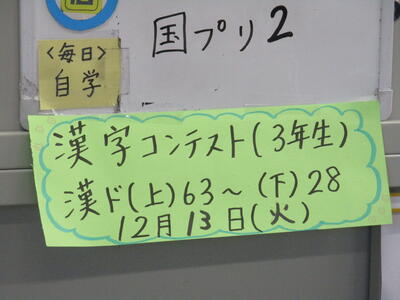 国プリ2
〈毎日〉
自学
漢字コンテスト(3年生)
漢ド(上)63〜(下)28
12月13日(火)